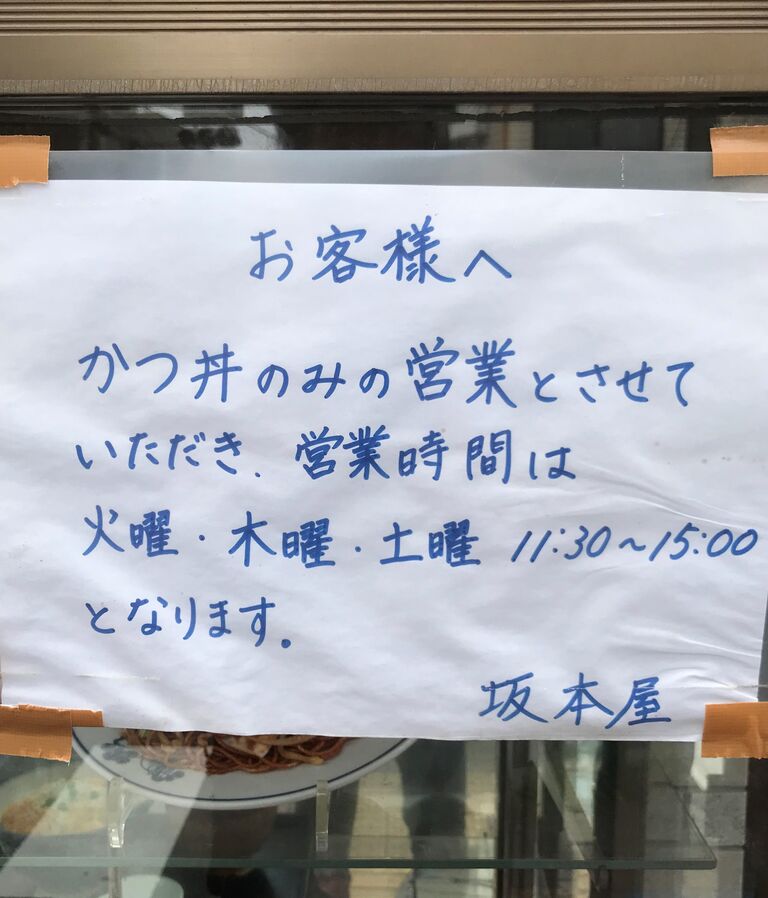 お客様へ
かつ丼のみの営業とさせて
いただき、営業時間は
火曜・木曜・土曜 11:30～15:00
となります。
坂本屋